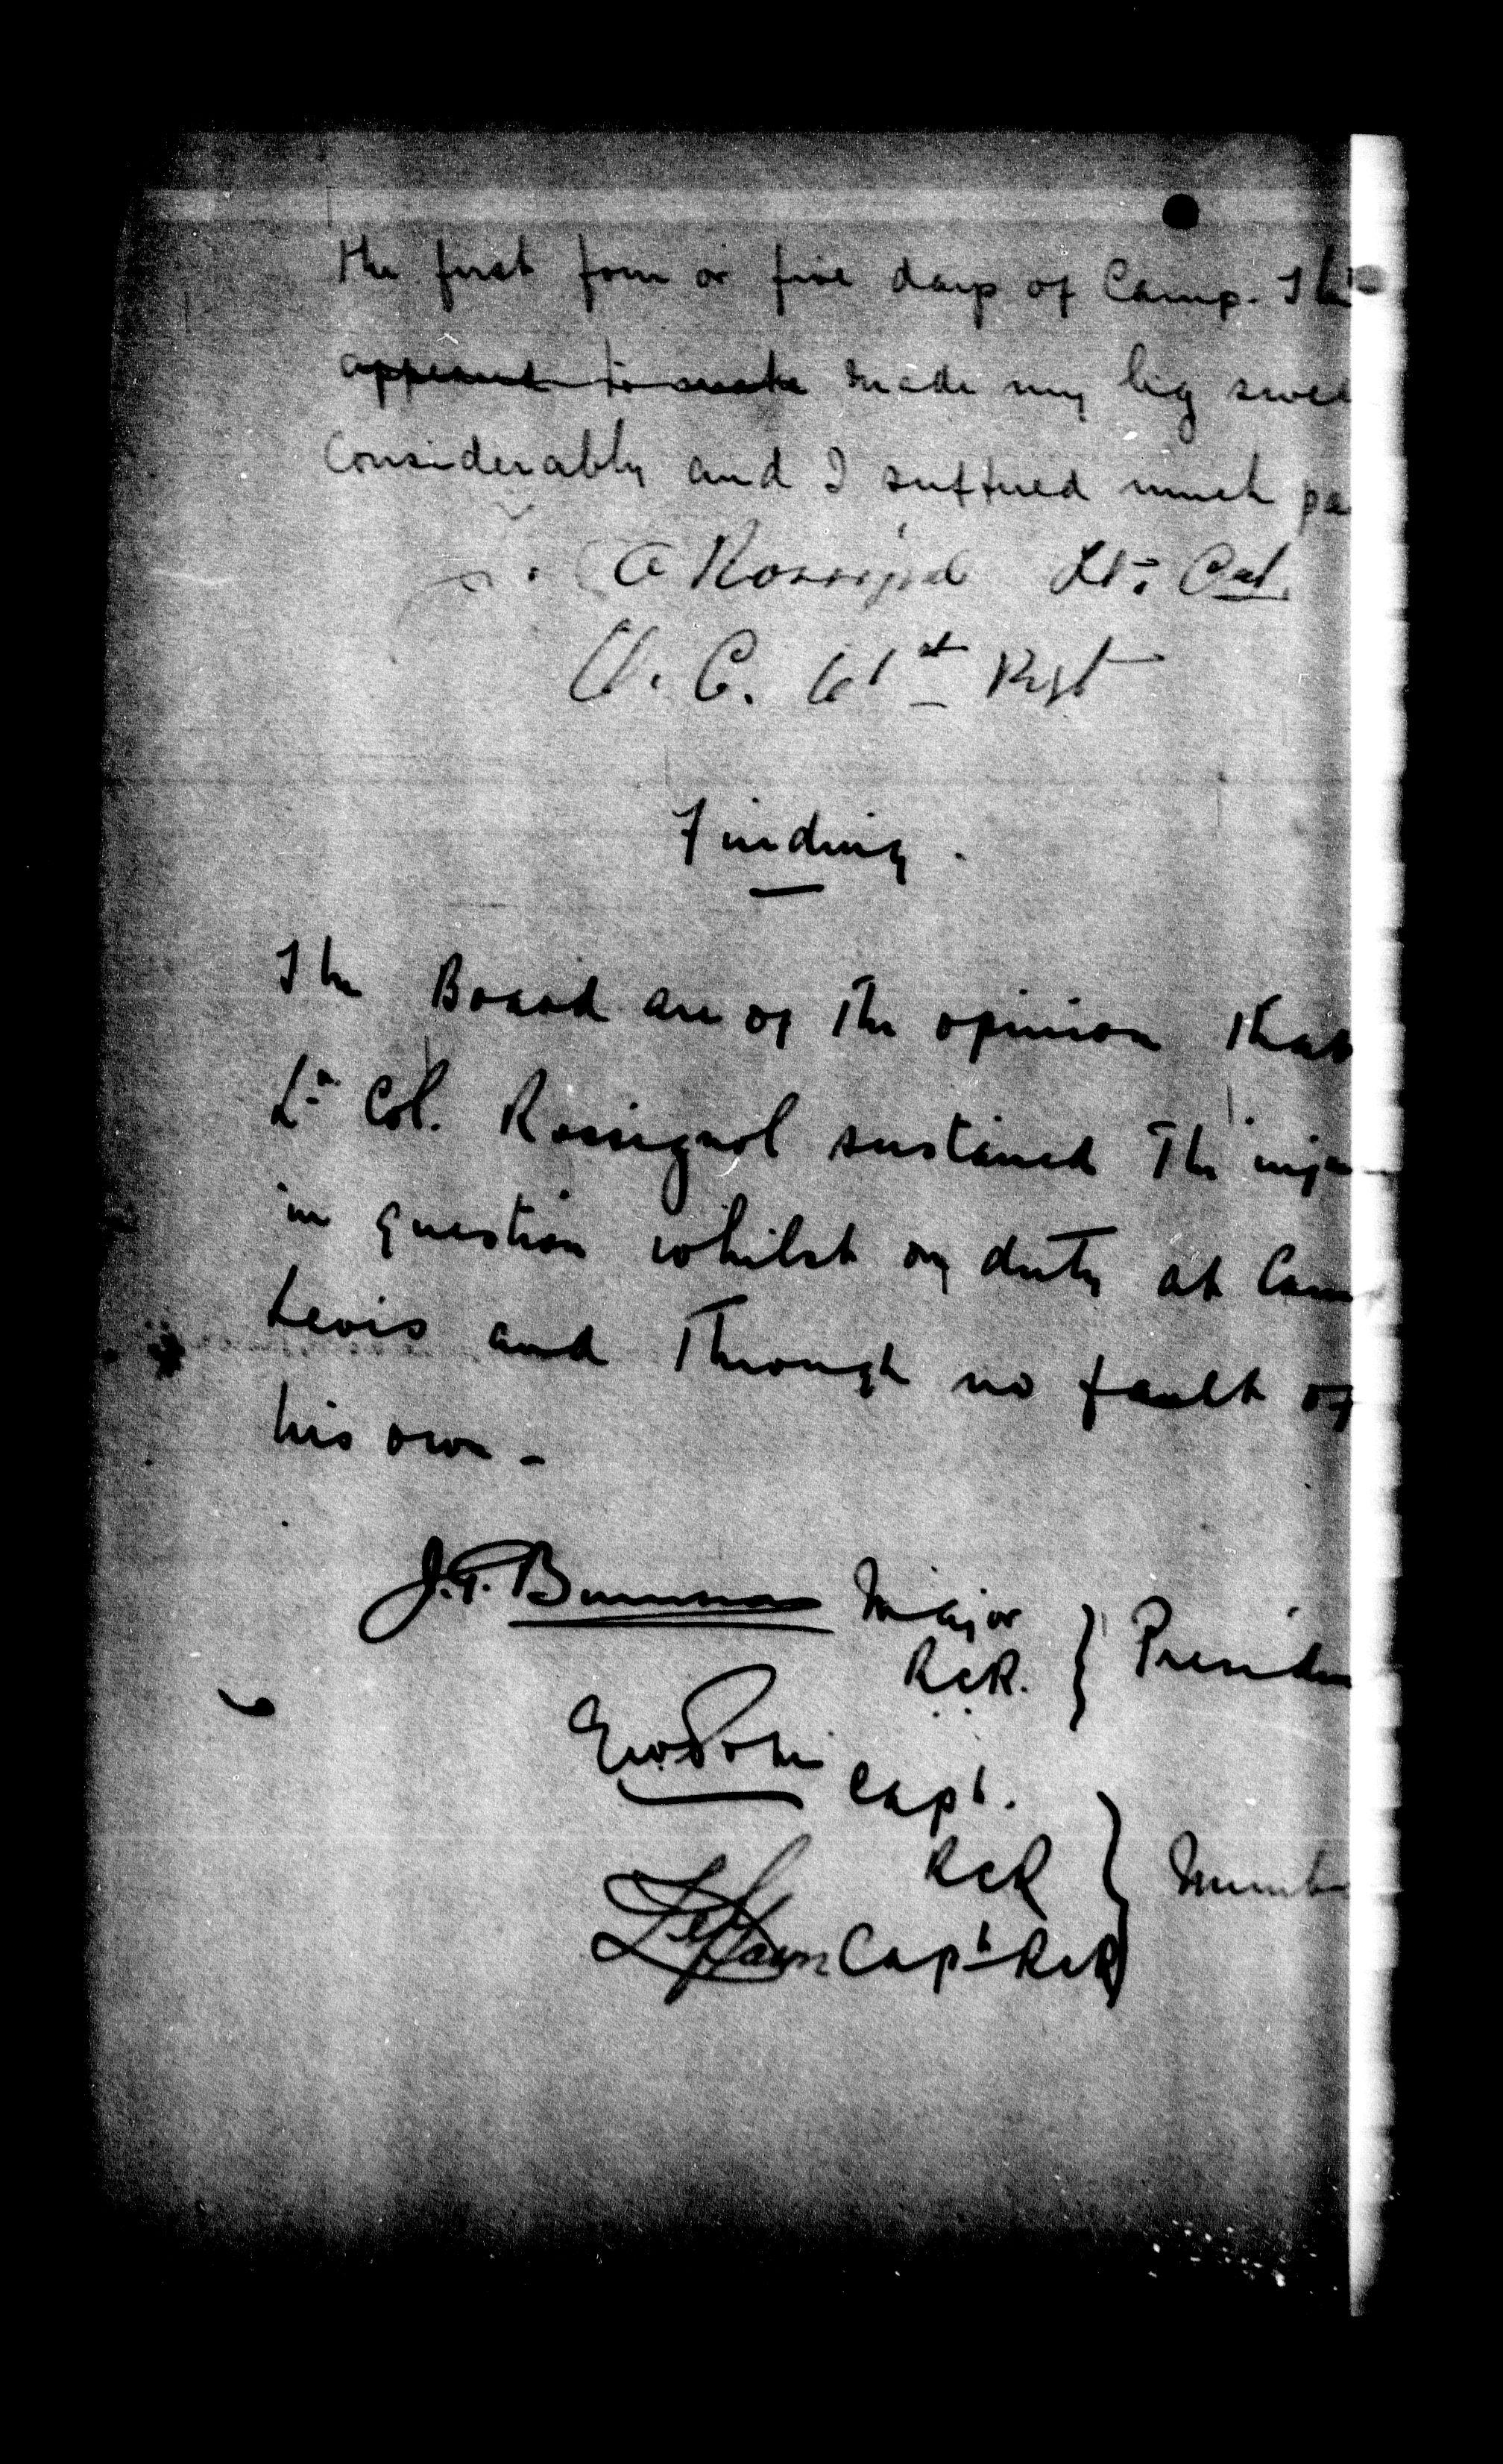 the first four or five days of Camp. Thi
appeared to make made my leg swel
Considerably and I suffered much pa
Rossignol Lt. Col.
O. C. 61st Regt
Finding.
The Board are of the opinion that
Lt Col. Rossignol sustained the inju
in question whilst on duty at Cam
Levis and through no fault of
his own -
J. Major
RCR. } Presiden
Capt.
RCR } Memb
Capt RCR